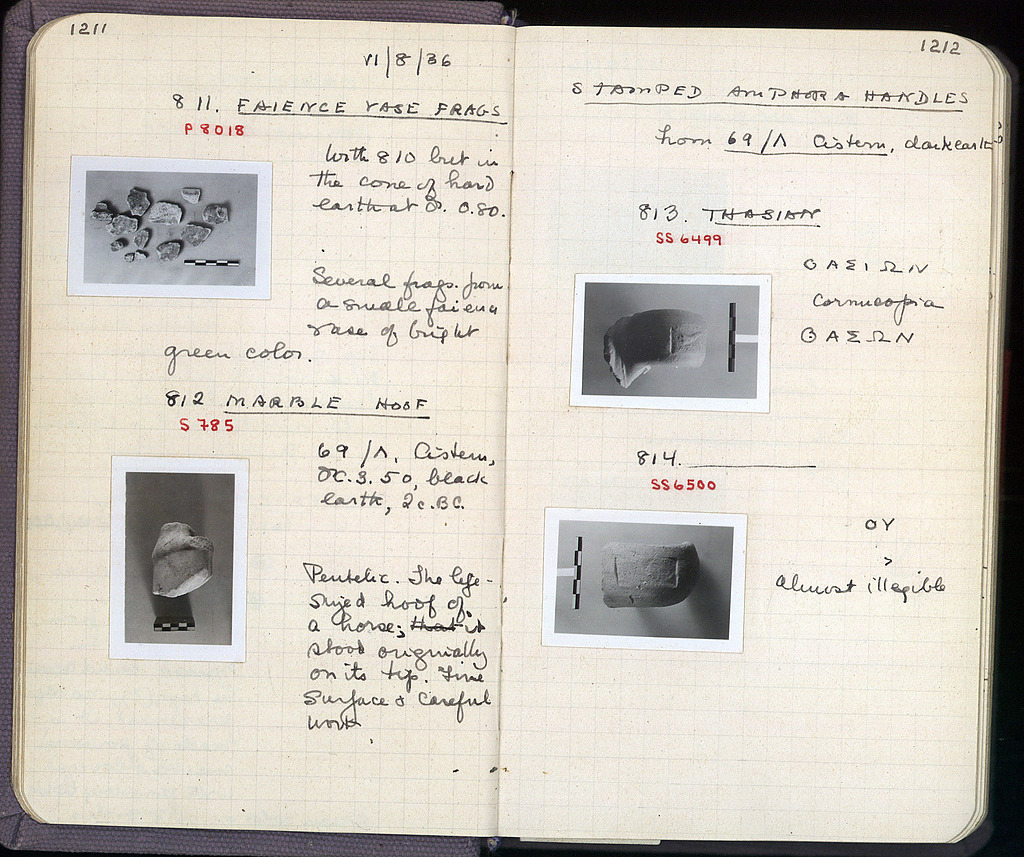 1211
VI/8/36
811. FAIENCE VASE FRAGS
P 8018
With 810 but in
the cone of hard
earth at
0.80.
Several frags. from
a small faience
vase of bright
green color.
812 MARBLE HOOF
S 785
69/Λ, Cistern,
3.50, black
earth, 2c. BC.
Pentelic. The life-
sized hoof of
a horse; that it
stood originally
on its tip. Fine
surface & careful
work
1212
STAMPED AMPHORA HANDLES
from 69/Λ Cistern, dark earth
813. THASIAN
SS 6499
ΘΑΣΙΩΝ
Cornucopia
ΘΑΣΩΝ
814.
SS 6500
ΟΥ
>
almost illegible